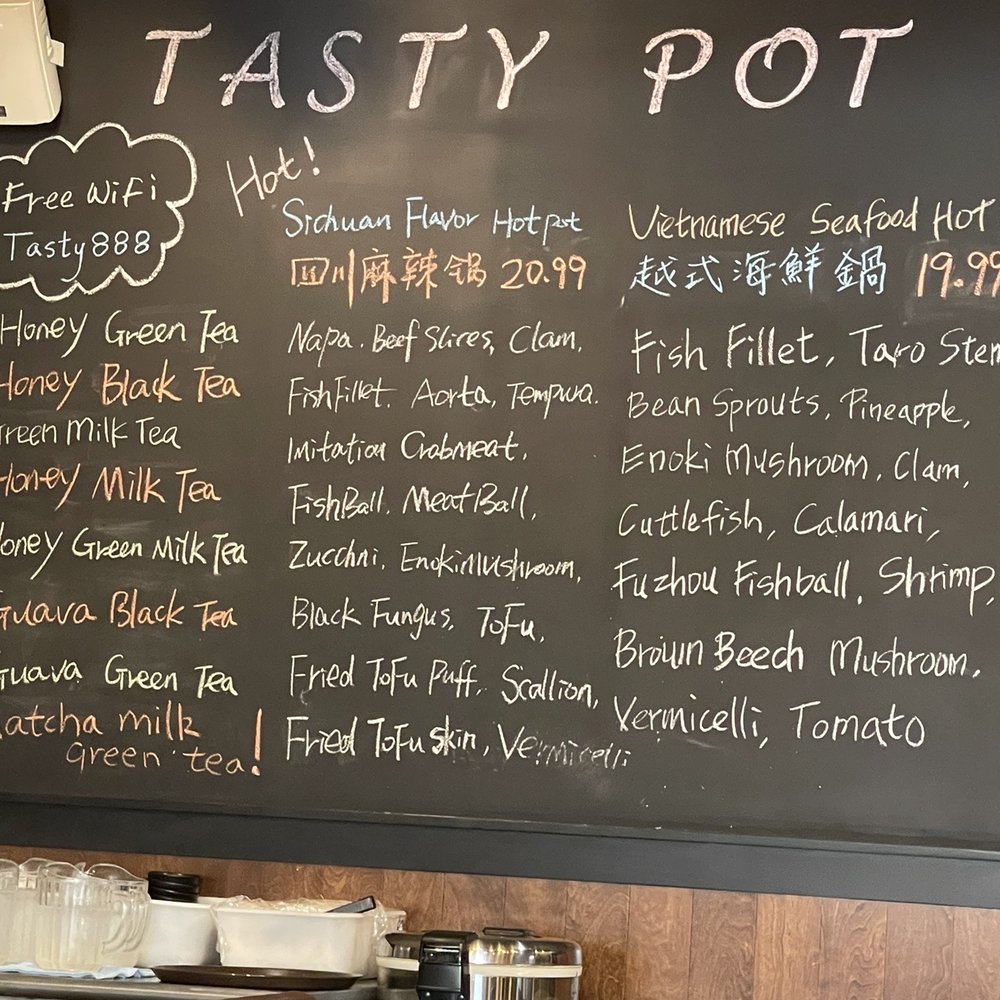 TASTY POT
Free WiFi
Tasty888
Honey Green Tea
Honey Black Tea
Green Milk Tea
Honey Milk Tea
Honey Green Milk Tea
Guava Black Tea
Guava Green Tea
atcha milk
green tea!
Hot!
Sichuan Flavor Hotpot
四川麻辣锅 20.99
Napa. Beef Slices, Clam,
Fish Fillet. Aorta, Tempura.
Imitation Crabmeat,
FishBall. MeatBall,
Zucchni, Enoki Mushroom,
Black Fungus, ToFu,
Fried ToFu Puff. Scallion,
Fried ToFu Skin, Vermicelli
Vietnamese Seafood Hot
越式海鮮鍋 19.99
Fish Fillet, Taro Stem
Bean Sprouts, Pineapple,
Enoki Mushroom, Clam,
Cuttlefish, Calamari,
Fuzhou Fishball, Shrimp,
Brown Beech Mushroom,
Vermicelli, Tomato